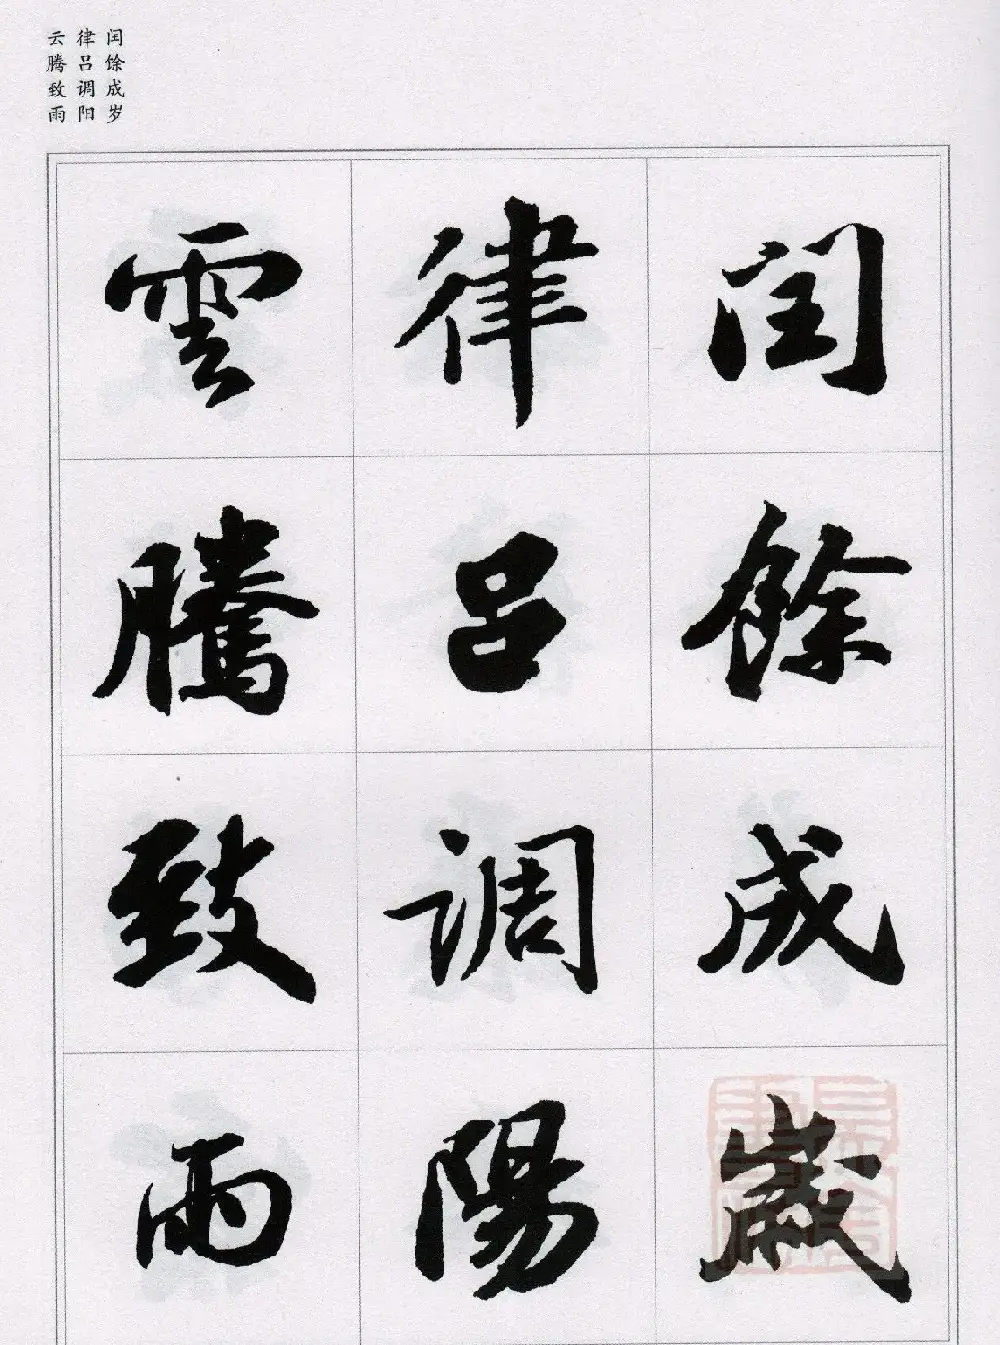 闰馀成岁
律吕调阳
云腾致雨
闰餘成歲
律吕调陽
雲騰致雨